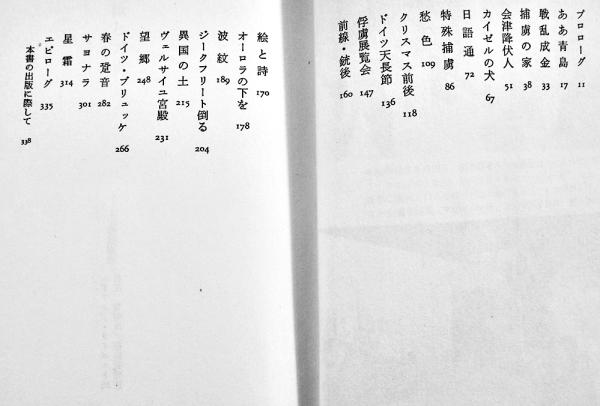 プロローグ 11
ああ青島 17
戦乱成金 33
捕虜の家 38
会津降伏人 51
カイゼルの犬 67
日語通 72
特殊捕虜 86
愁色 109
クリスマス前後 118
ドイツ天長節 136
俘虜展覧会 147
前線・銃後 160
絵と詩 170
オーロラの下を 178
波紋 189
ジークフリート倒る 204
異国の土 215
ヴェルサイユ宮殿 231
望郷 248
ドイツ・ブリュッケ 266
春の跫音 282
サヨナラ 301
星霜 314
エピローグ 335
本書の出版に際して 338